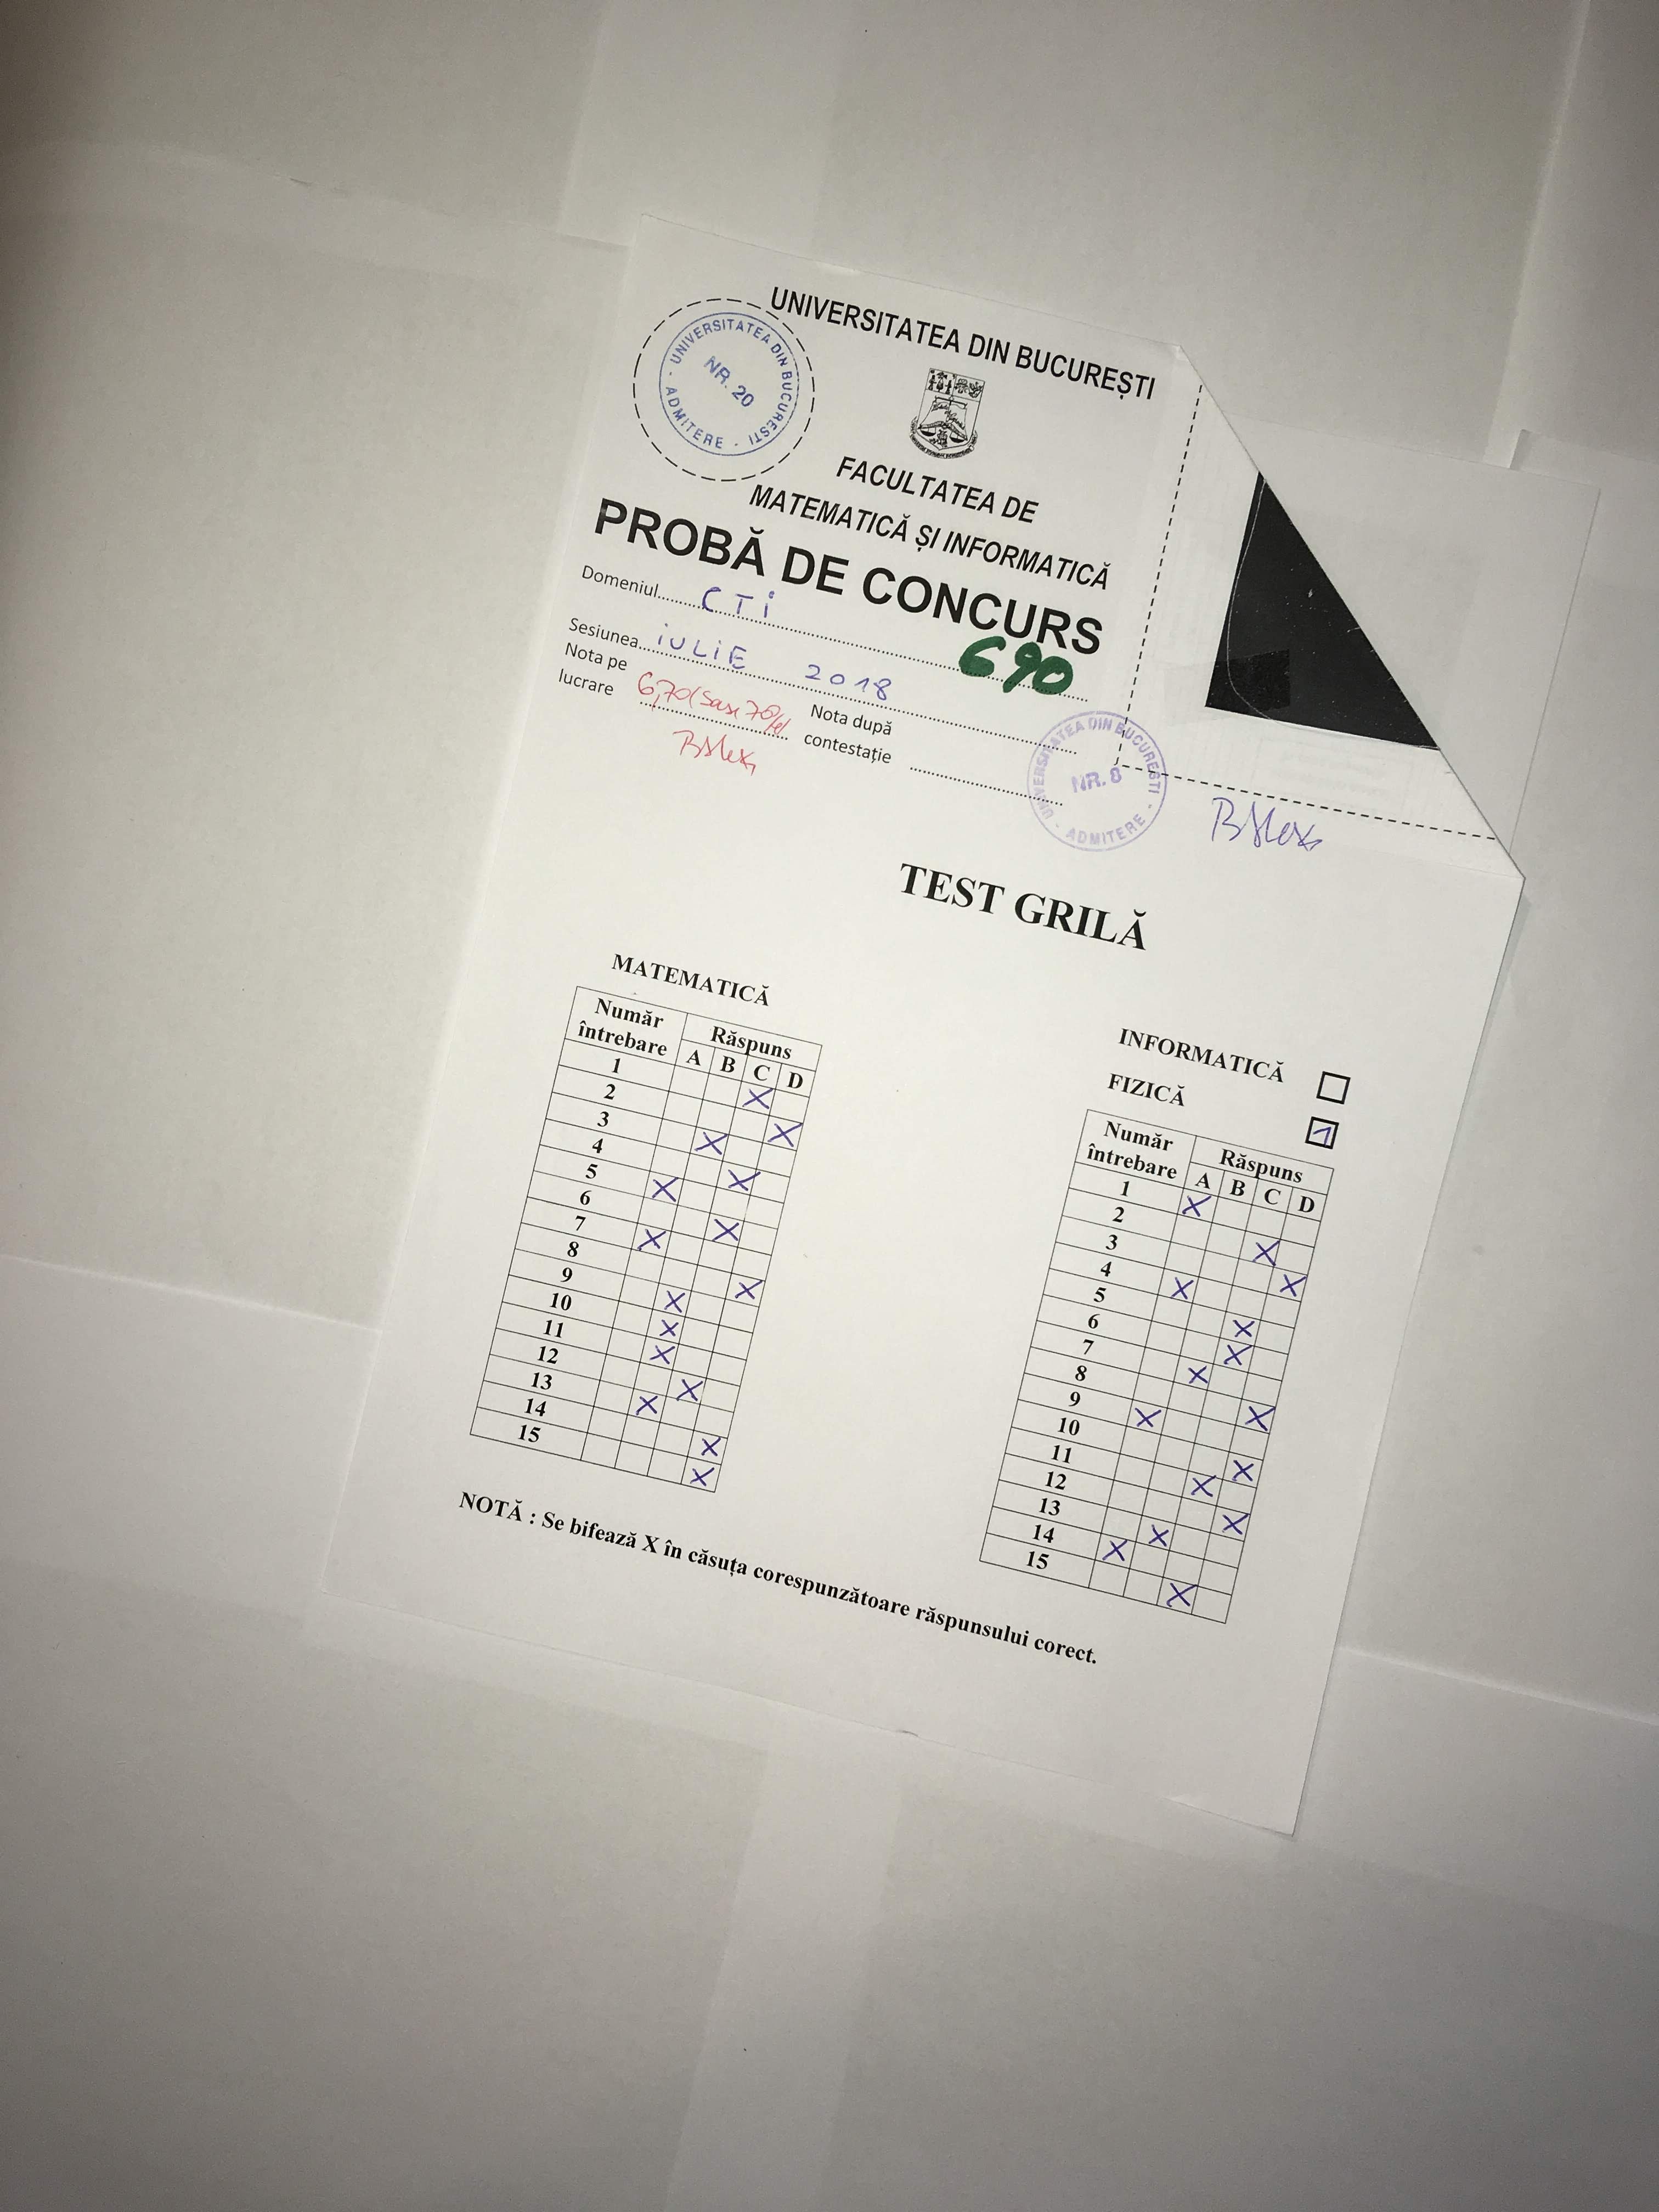 UNIVERSITATEA DIN BUCUREȘTI
UNIVERSITATEA DIN BUCURESTI
NR. 20
- ADMITERE -
FACULTATEA DE
MATEMATICĂ ȘI INFORMATICĂ
PROBĂ DE CONCURS
Domeniul CTi
690
Sesiunea iULiE 2018
Nota pe lucrare 6,70 (
Nota după contestație
UNIVERSITATEA DIN BUCURESTI
NR. 8
- ADMITERE -
TEST GRILĂ
MATEMATICĂ
Număr întrebare Răspuns
A B C D
1 X
2 X
3 X
4 X
5 X
6 X
7 X
8 X
9 X
10 X
11 X
12 X
13 X
14 X
15 X
INFORMATICĂ
FIZICĂ 1
Număr întrebare Răspuns
A B C D
1 X
2 X
3 X
4 X
5 X
6 X
7 X
8 X
9 X
10 X
11 X
12 X
13 X
14 X
15 X
NOTĂ : Se bifează X în căsuța corespunzătoare răspunsului corect.